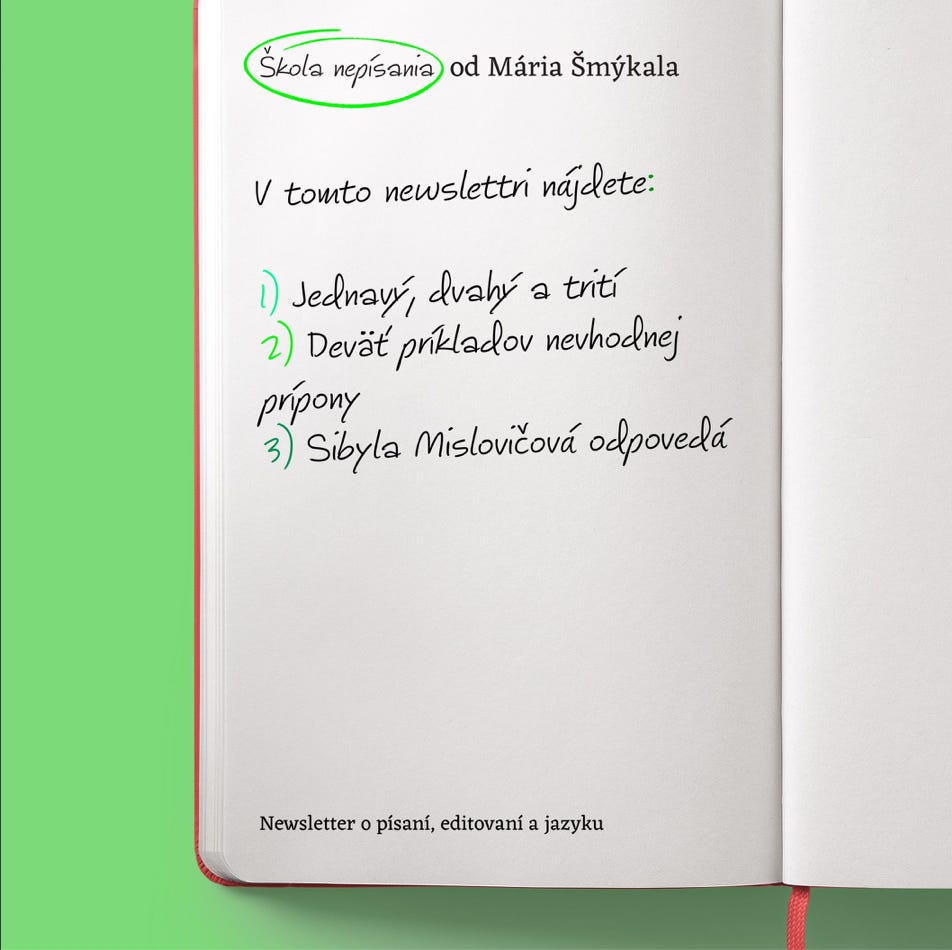 Škola nepísania od Mária Šmýkala
V tomto newslettri nájdete:
1) Jednavý, dvahý a trití
2) Deväť príkladov nevhodnej
prípony
3) Sibyla Mislovičová odpovedá
Newsletter o písaní, editovaní a jazyku